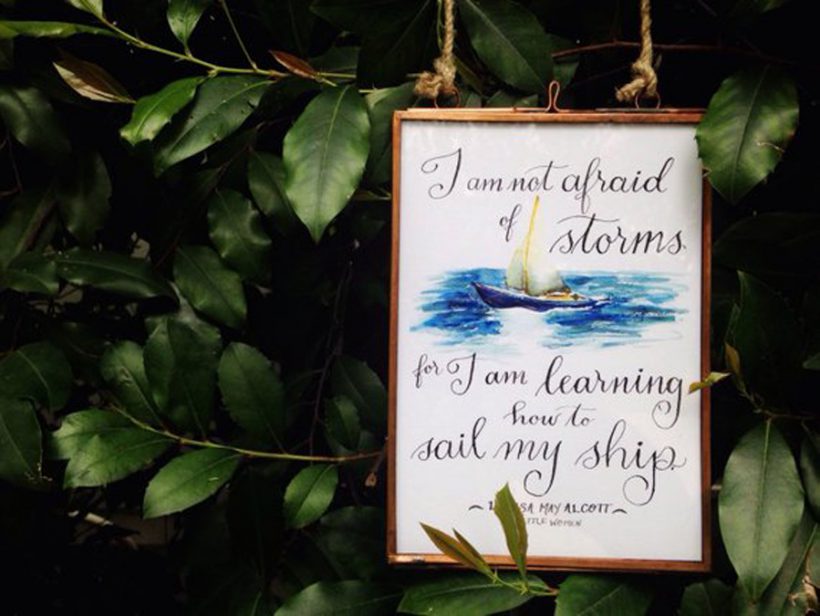 I am not afraid
of storms
for I am learning
how to
sail my ship.
MAY ALCOTT
WOMEN